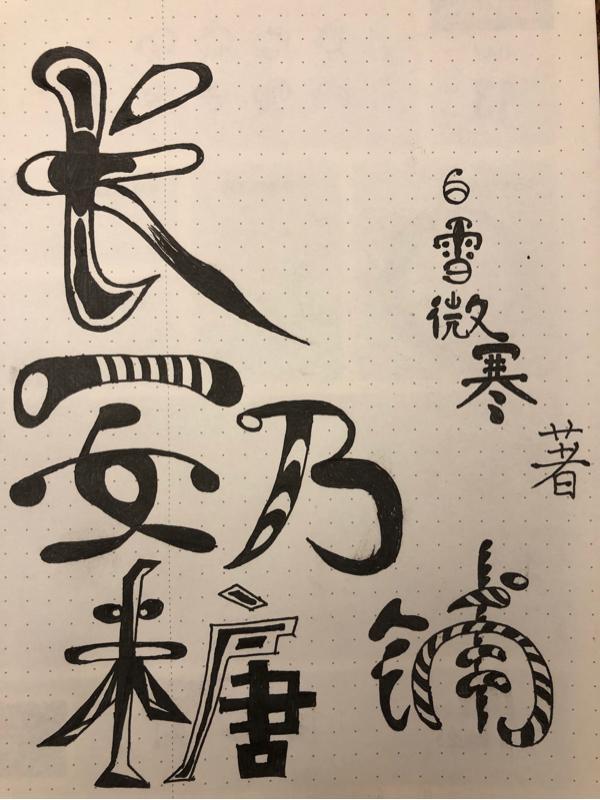 长
安奶
糖铺
白雪微寒
著